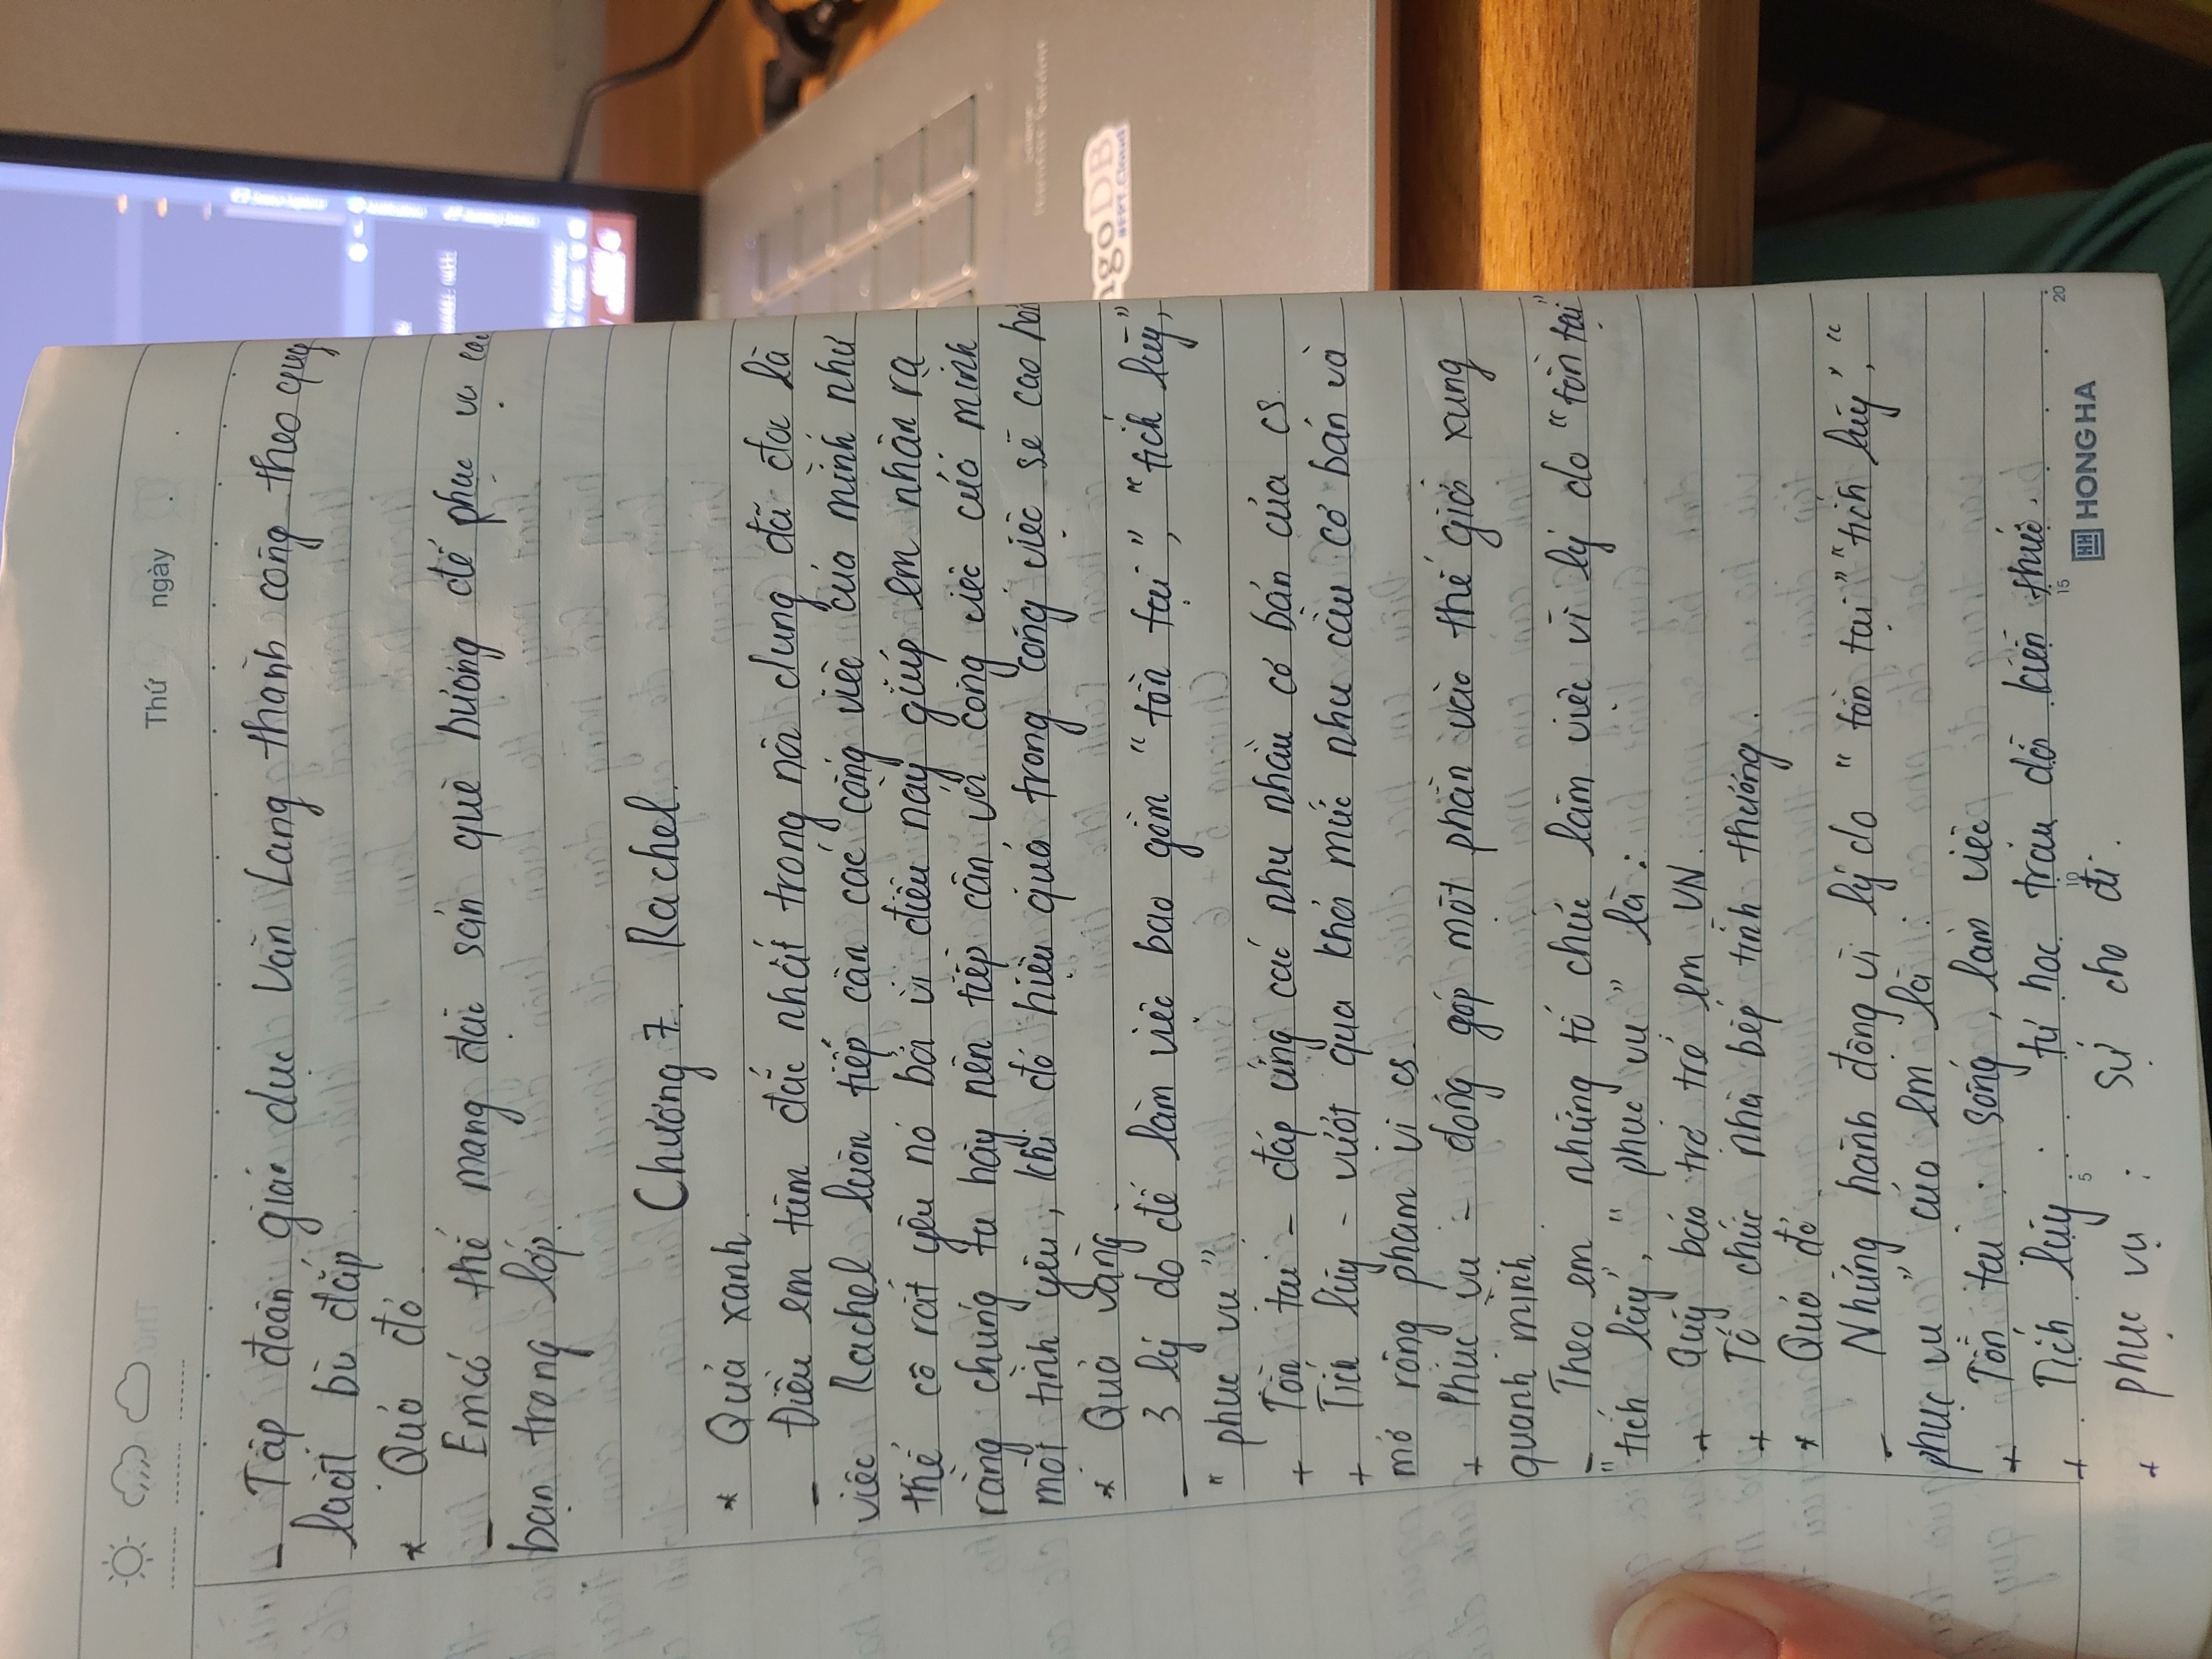 Thứ ngày
- Tập đoàn giáo dục Văn Lang thành công theo quy
luật bù đắp.
* Quả đỏ.
- Em có thể mang đặc sản quê hương để phục vụ các
bạn trong lớp.
Chương 7. Rachel.
* Quả xanh.
- Điều em tâm đắc nhất trong nội dung đã đọc là
việc Rachel luôn tiếp cận các công việc của mình như
thể cô rất yêu nó bởi vì điều này giúp em nhận ra
rằng chúng ta hãy nên tiếp cận với công việc của mình
một tình yêu, khi đó hiệu quả trong công việc sẽ cao hơn
* Quả vàng.
- 3 lý do để làm việc bao gồm "tồn tại", "tích lũy",
"phục vụ".
+ Tồn tại - đáp ứng các nhu nhầu cơ bản của cs.
+ Tích lũy - vượt qua khỏi mức nhu cầu cơ bản và
mở rộng phạm vi cs.
+ Phục vụ - đóng góp một phần vào thế giới xung
quanh mình.
- Theo em những tổ chức làm việc vì lý do "tồn tại"
"tích lũy", "phục vụ" là:
+ Quỹ bảo trợ trẻ em VN.
+ Tổ chức nhà bếp tình thương.
* Quả đỏ
- Những hành động vì lý do "tồn tại" "tích lũy", "
phục vụ" của em là:
+ Tồn tại: sống, làm việc
+ Tích lũy: tự học trau dồi kiến thức.
5 10 15 20
HH HONG HA
+ phục vụ: sự cho đi.
ngoDB
#FPT.Cloud